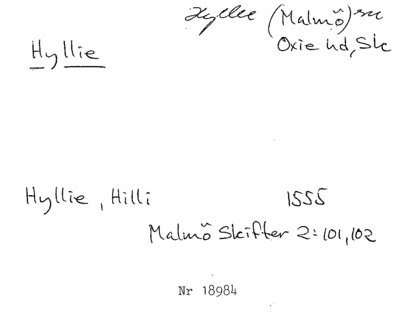 Hyllie (Malmö) sn
Hyllie
Oxie hd, Sk
Hyllie, Hilli 1555
Malmö Skifter 2:101,102
Nr 18984